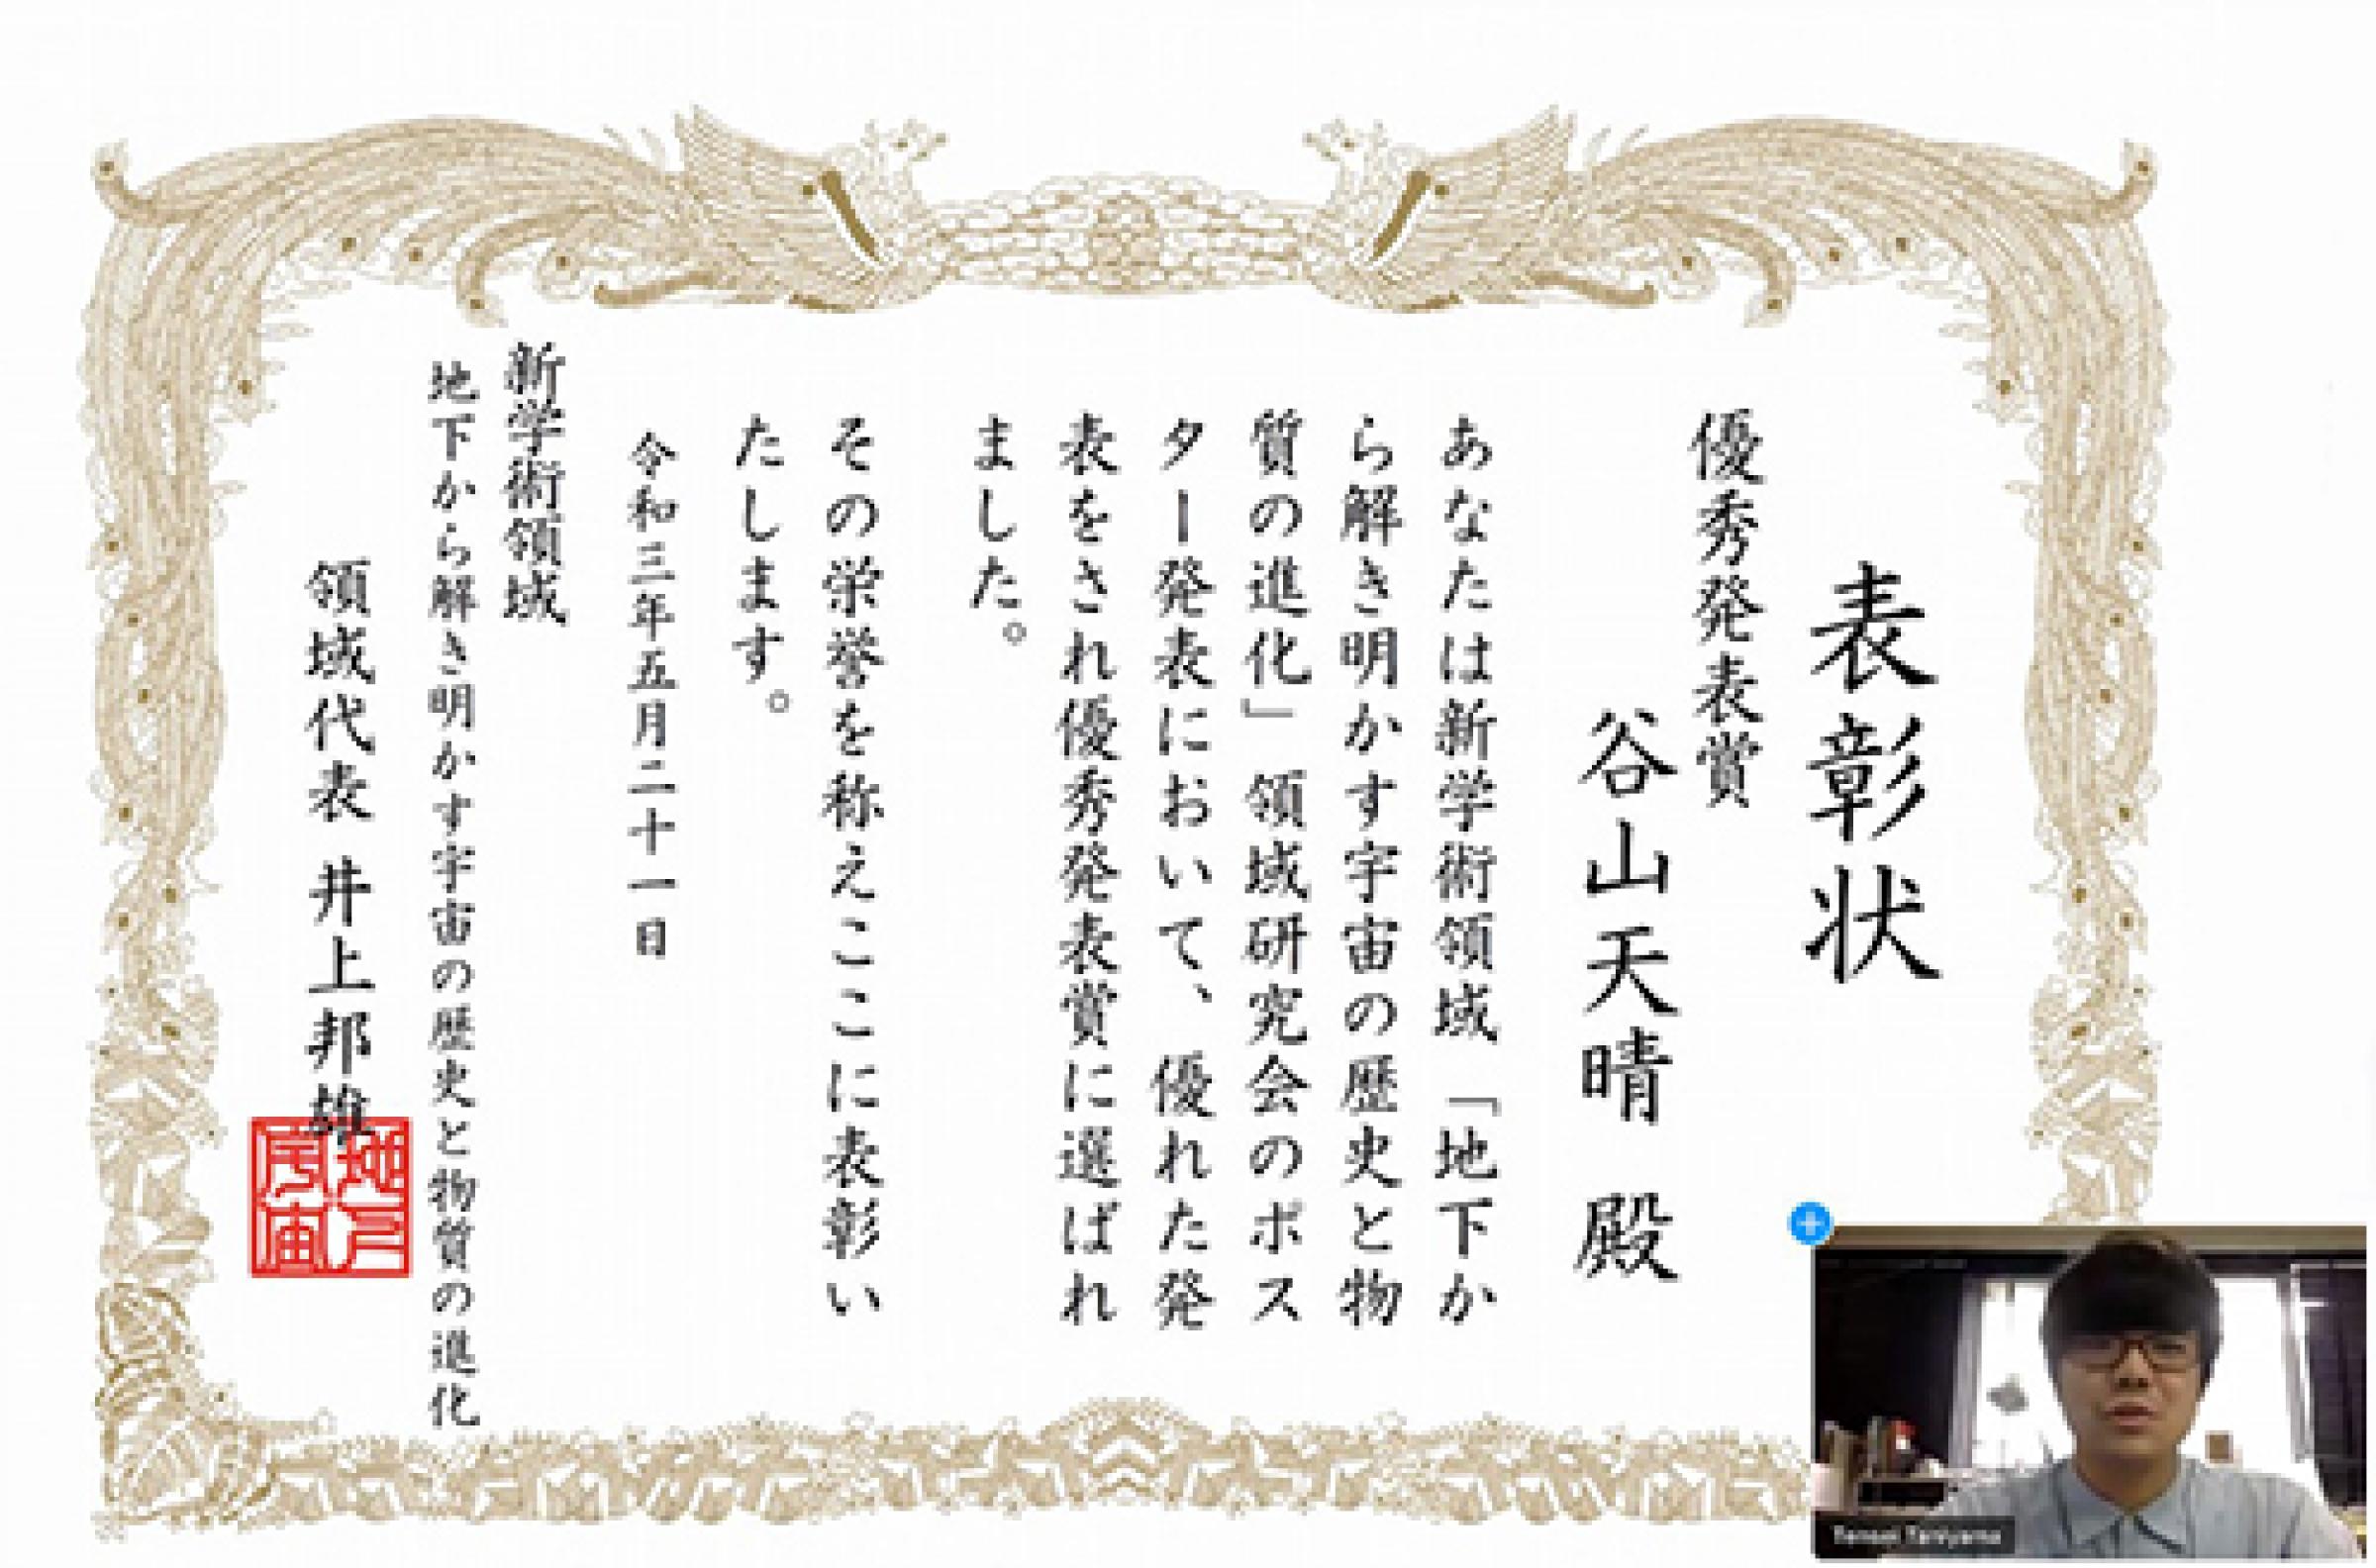 表彰状
優秀発表賞
谷山天晴 殿
あなたは新学術領域「地下か
ら解き明かす宇宙の歴史と物
質の進化」領域研究会のポス
ター発表において、優れた発
表をされ優秀発表賞に選ばれ
ました。
その栄誉を称えここに表彰い
たします。
令和三年五月二十一日
新学術領域
地下から解き明かす宇宙の歴史と物質の進化
領域代表 井上邦雄
Tensei Taniyama